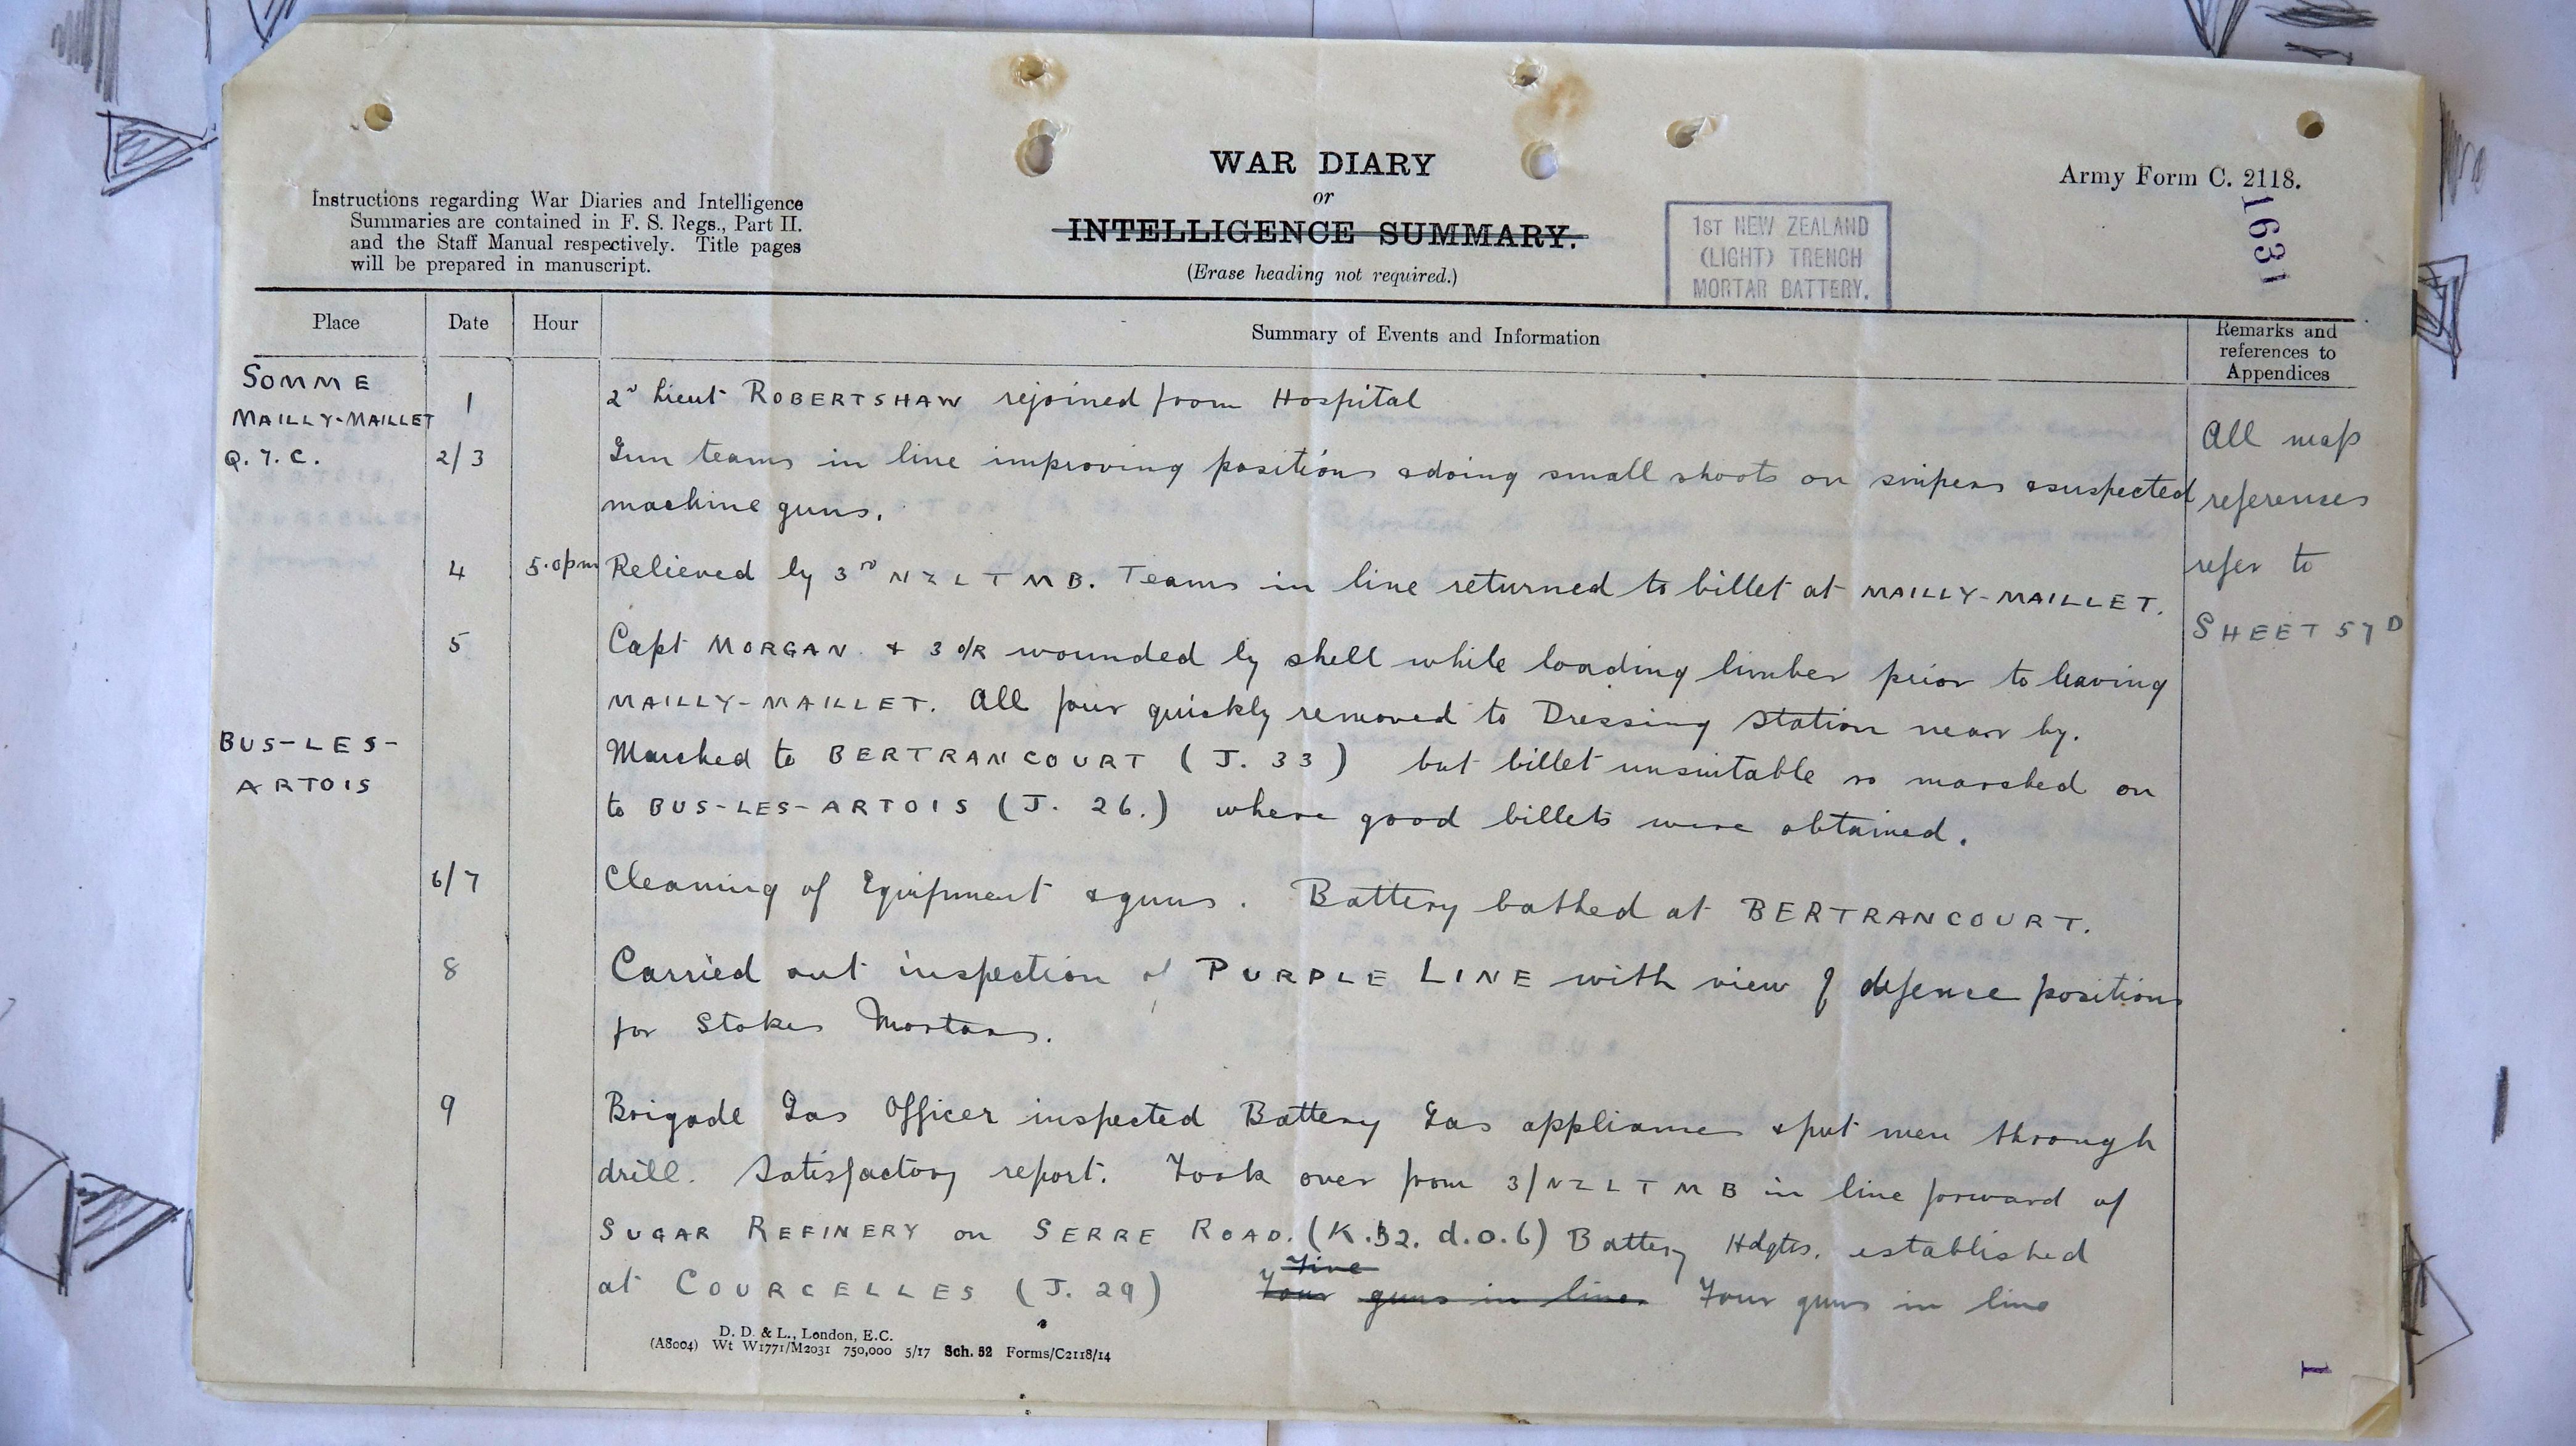 Instructions regarding War Diaries and Intelligence
Summaries are contained in F. S. Regs., Part II.
and the Staff Manual respectively. Title pages
will be prepared in manuscript.
WAR DIARY
or
INTELLIGENCE SUMMARY.
(Erase heading not required.)
1ST NEW ZEALAND
(LIGHT) TRENCH
MORTAR BATTERY.
Army Form C. 2118.
1631
Place
Date
Hour
Summary of Events and Information
Remarks and
references to
Appendices
SOMME
MAILLY-MAILLET
Q. 7. C.
1
2d Lieut ROBERTSHAW rejoined from Hospital
2/3
Gun teams in line improving positions & doing small shoots on snipers & suspected
machine guns.
4
5.0pm
Relieved by 3rd NZLTMB. Teams in line returned to billet at MAILLY-MAILLET.
5
Capt MORGAN. + 3 O/R wounded by shell while loading limber prior to leaving
MAILLY-MAILLET. All four quickly removed to Dressing Station near by.
BUS-LES-
ARTOIS
Marched to BERTRANCOURT (J. 33) but billet unsuitable so marched on
to BUS-LES-ARTOIS (J. 26.) where good billets were obtained.
6/7
Cleaning of Equipment & guns. Battery bathed at BERTRANCOURT.
8
Carried out inspection of PURPLE LINE with view of defence positions
for Stokes Mortars.
9
Brigade Gas Officer inspected Battery Gas appliances & put men through
drill. Satisfactory report. Took over from 3/NZLTMB in line forward of
SUGAR REFINERY on SERRE ROAD. (K.32. d.0.6) Battery Hdqtrs. established
at COURCELLES (J. 29) Four Five guns in line. Four guns in line
All map
references
refer to
SHEET 57D
D. D. & L., London, E.C.
(A8004) Wt W1771/M2031 750,000 5/17 Sch. 52 Forms/C2118/14
1